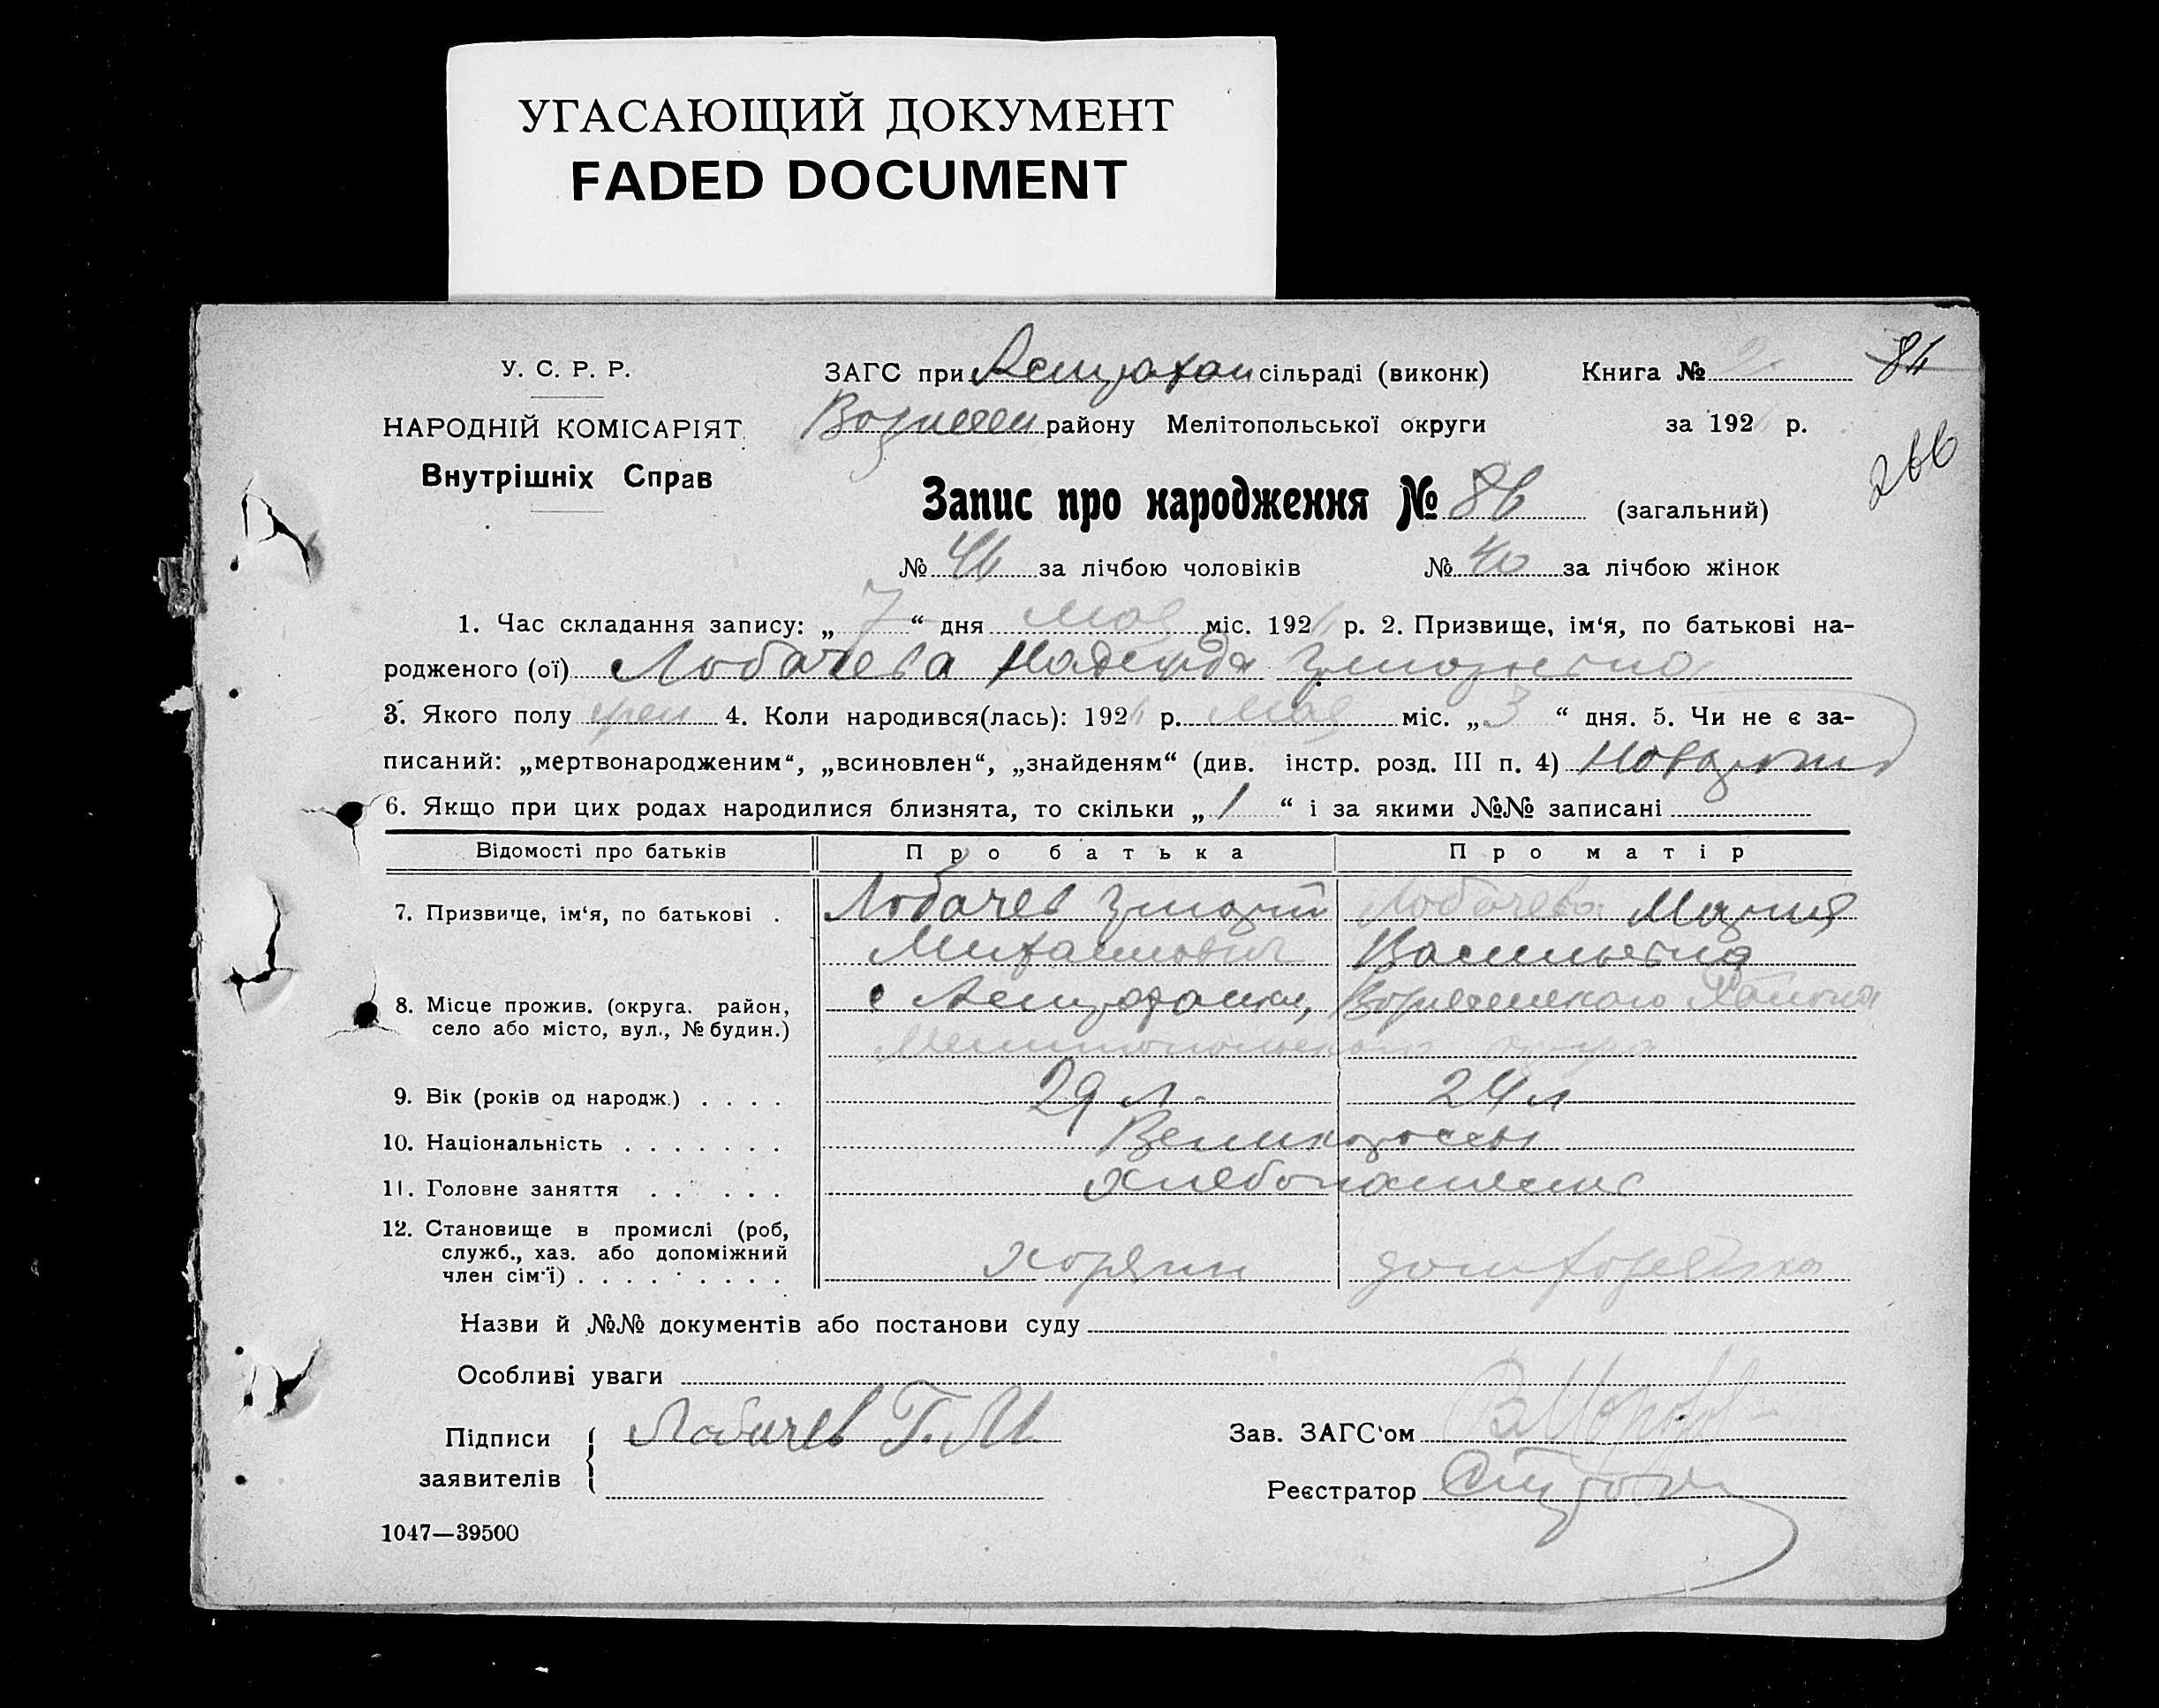 УГАСАЮЩИЙ ДОКУМЕНТ
FADED DOCUMENT
У. С. Р. Р.
НАРОДНІЙ КОМІСАРІЯТ
Внутрішніх Справ
ЗАГС при Астрахан сільраді (виконк)
Книга № 2
84
района Мелітопольської округи
за 192 р.
266
Запис про народження № 86 (загальний)
№ 46 за лічбою чоловіків № 40 за лічбою жінок
1. Час складання запису: „ 7 “ дня мая міс. 192 р. 2. Призвище, ім‘я, по батькові на-
родженого (ої) Лобачева Надежда
3. Якого полу жен 4. Коли народився(лась): 192 р. мая міс. „ 3 “ дня. 5. Чи не є за-
писаний: „мертвонародженим“, „всиновлен“, „знайденям“ (див. інстр. розд. III п. 4)
6. Якщо при цих родах народилися близнята, то скільки „ 1 “ і за якими №№ записані
Відомості про батьків Про батька Про матір
7. Призвище, ім‘я, по батькові . Лобачев Лобачева Мария
Михайлович Васильевна
8. Місце прожив. (округа. район, с Астраханки, Вознесенского Района
село або місто, вул., № будин.) Мелитопольского округа
9. Вік (років од народж.) . . . . 29 л. 24 л
10. Національність . . . . . . . Великороссы
11. Головне заняття . . . . . . Хлебопашение
12. Становище в промислі (роб,
служб., хаз. або допоміжний
член сім‘ї) . . . . . . . . . хозяин домхозяйка
Назви й №№ документів або постанови суду
Особливі уваги
Підписи
заявителів
Лобачев Г. М.
Зав. ЗАГС‘ом
Реєстратор
1047—39500